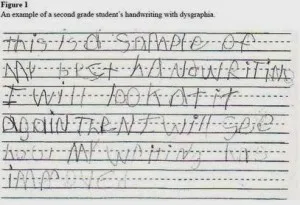 Figure 1
An example of a second grade student's handwriting with dysgraphia.
this is a SAMPLE OF
MY best HANDWRITING
I will look AT it
AgAiN THEN I will see
how MY WRiting HAS
iMPROVED